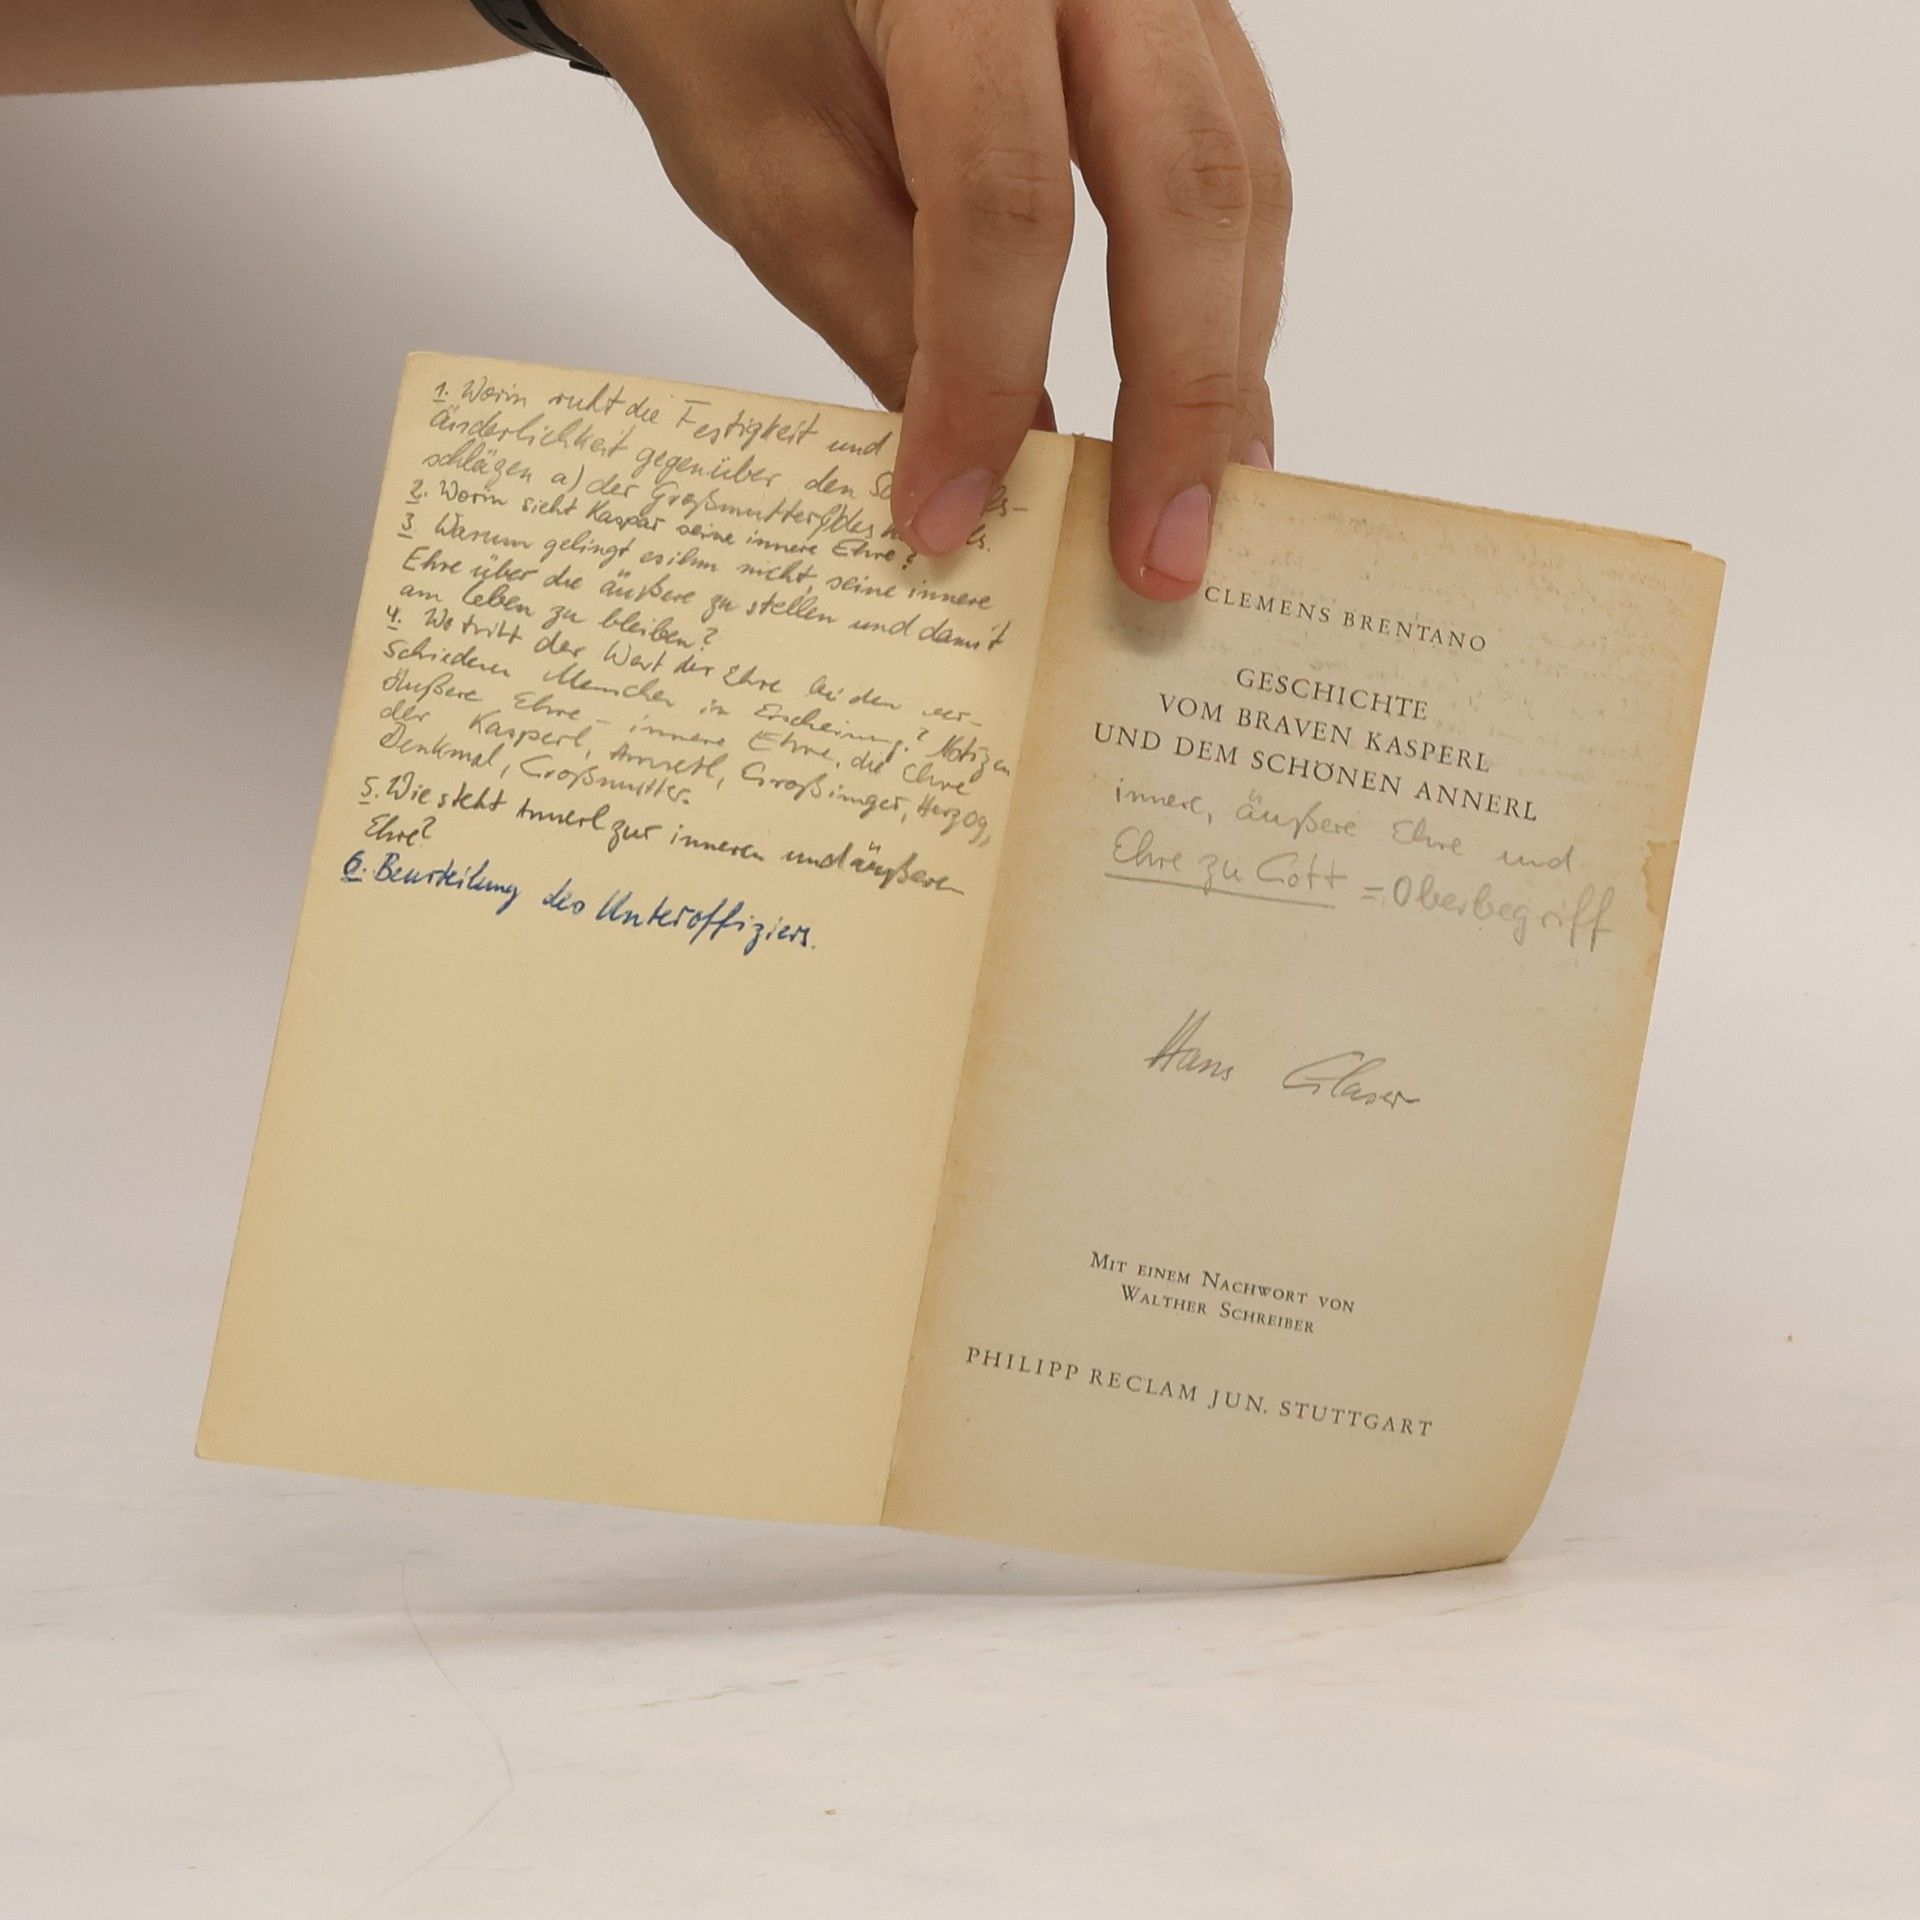 1. Worin ruht die Festigkeit und
änderlichkeit gegenüber den
schlägen a) der Großmutter b) des
2. Worin sieht Kaspar seine innere Ehre?
3. Warum gelingt es ihm nicht, seine innere
Ehre über die äußere zu stellen und damit
am Leben zu bleiben?
4. Wo tritt der Wert der Ehre bei den ver-
schiedenen Menschen in Erscheinung? Notizen
äußere Ehre – innere Ehre, die Ehre
der Kasperl, Annerl, Großinger, Herzog,
Denkmal, Großmutter.
5. Wie steht Annerl zur inneren und äußeren
Ehre?
6. Beurteilung des Unteroffiziers.
CLEMENS BRENTANO
GESCHICHTE
VOM BRAVEN KASPERL
UND DEM SCHÖNEN ANNERL
innere, äußere Ehre und
Ehre zu Gott = Oberbegriff
Hans Glaser
MIT EINEM NACHWORT VON
WALTHER SCHREIBER
PHILIPP RECLAM JUN. STUTTGART